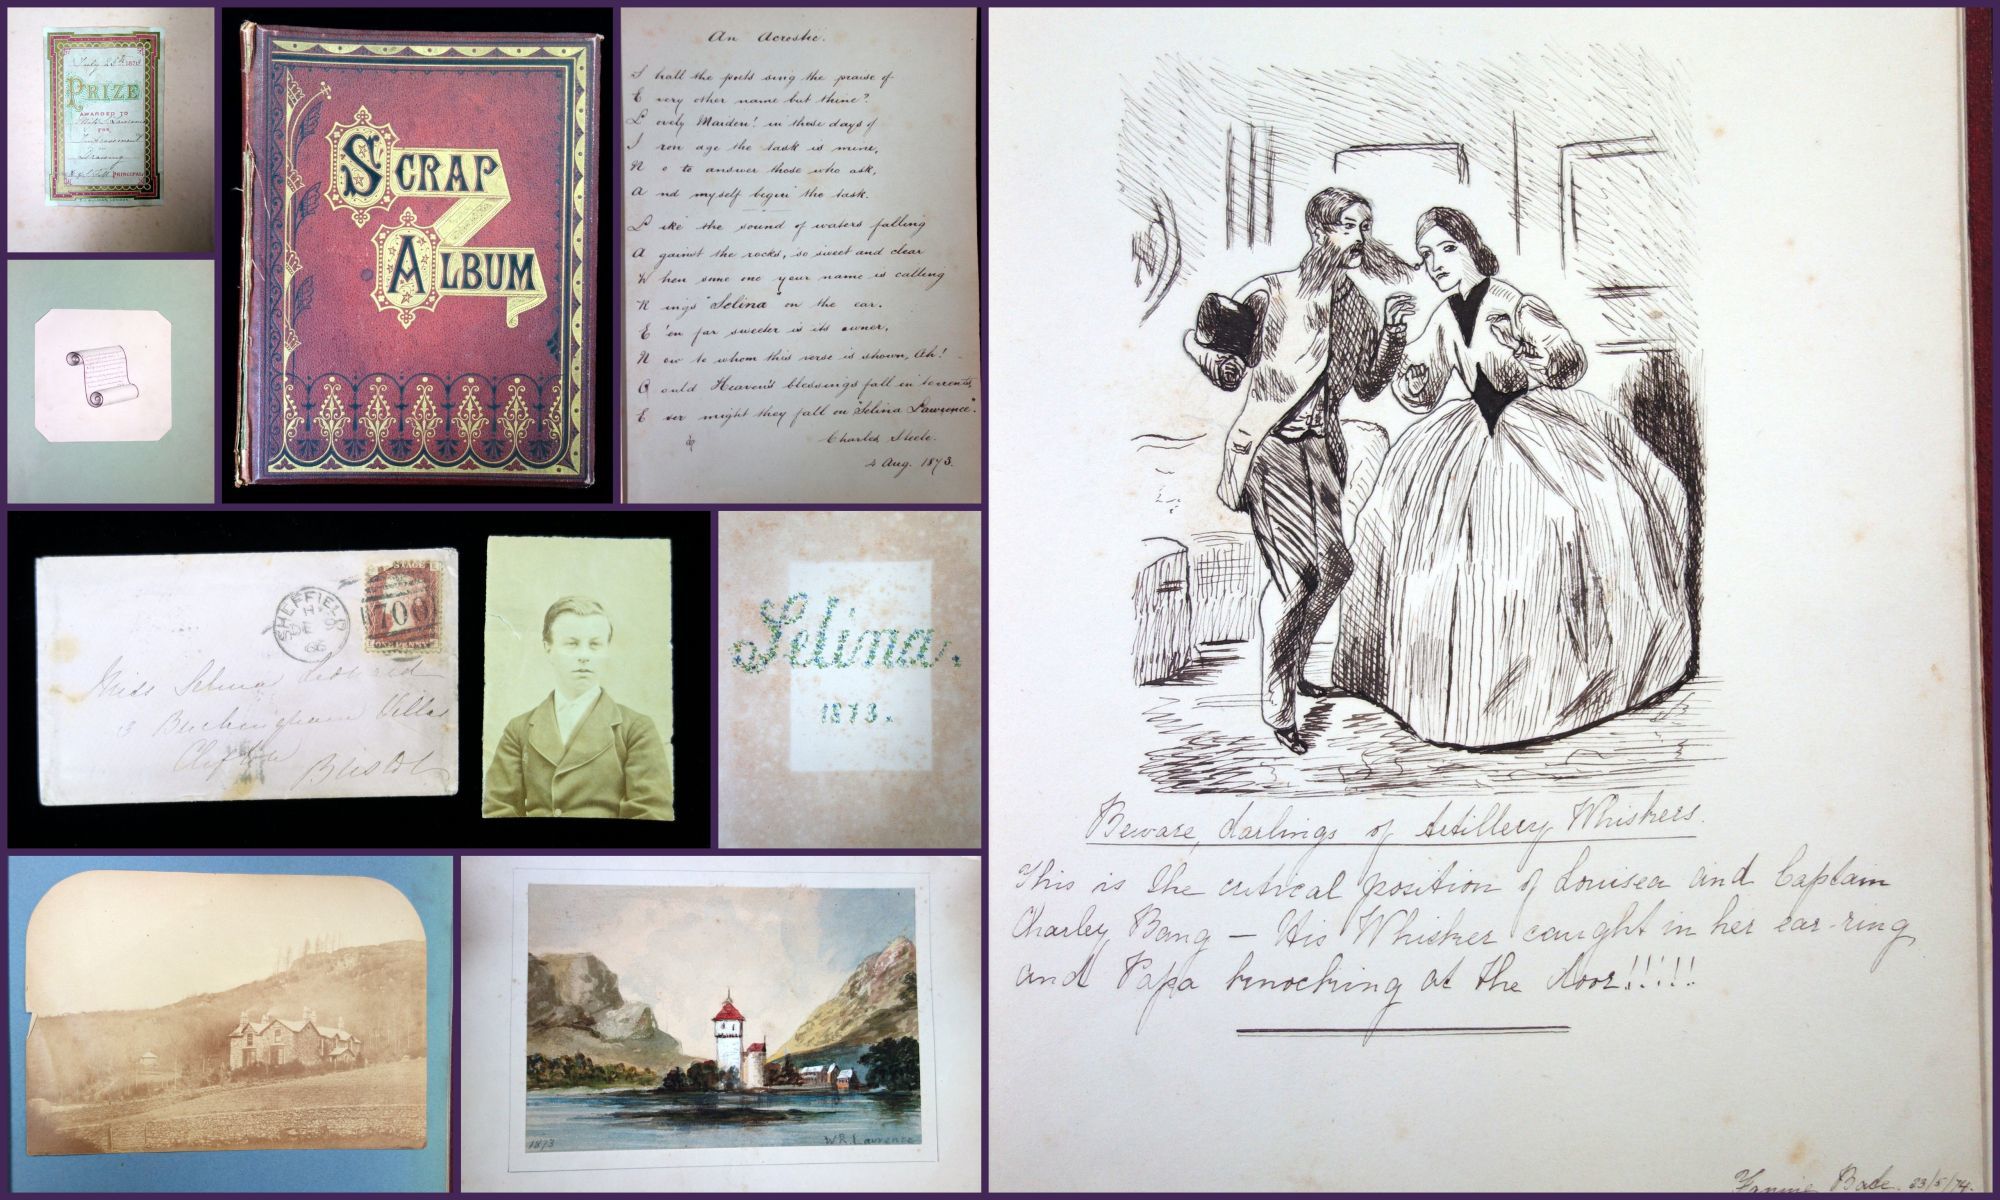 July 28th 1873
PRIZE
AWARDED TO
Miss Lawrence
FOR
Improvement
in
Drawing
PRINCIPAL
SCRAP
ALBUM
An Acrostic.
S hall the poets sing the praise of
E very other name but thine?
L ovely Maiden! in these days of
I ron age the task is mine,
N o to answer those who ask,
A nd myself begin the task.
L ike the sound of waters falling
A gainst the rocks, so sweet and clear
W hen some one your name is calling
R ings "Selina" on the ear.
E 'en far sweeter is its owner,
N ow to whom this verse is shown, Ah!
C ould Heaven's blessings fall in torrents,
E ver might they fall on "Selina Lawrence".
Charles Steele.
4 Aug. 1873.
SHEFFIELD
H
DE
66
STAGE
700
ONE PENNY
Miss Selina
3 Buckingham Villas
Clifton
Bristol
Selina.
1873.
1873
W R Lawrence
Beware, darlings of Artillery Whiskers.
This is the critical position of Louisea and Captain
Charley Bang – His Whisker caught in her ear-ring
and Papa knocking at the door!!!!!
Fannie Bate. 23/5/74.